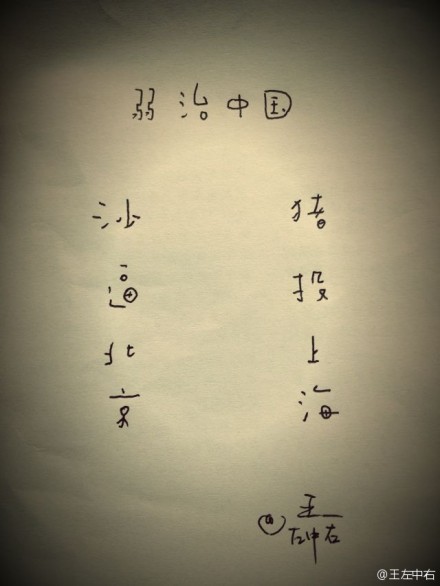 弱治中国
沙逼北京
猪投上海
@王
左中右
@王左中右